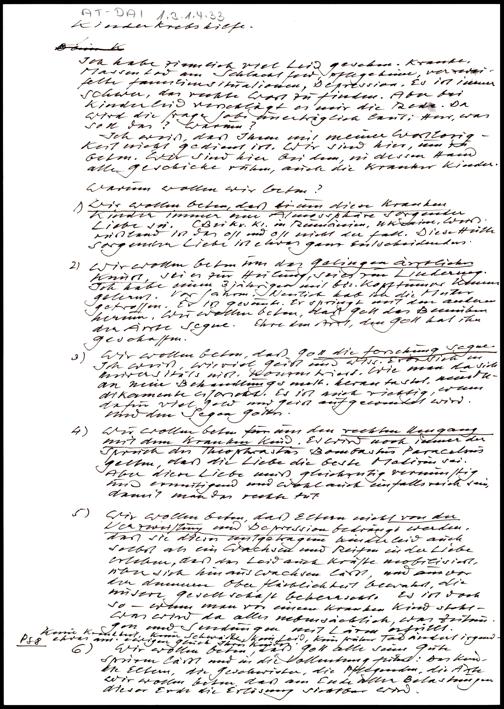 AT-DAI 1.3.1.4.33
Kinderkrebshilfe.
Ich habe ziemlich viel Leid gesehen. Kranke.
Massentod am Schlachtfeld, Pflegeheime, verzwei-
felte Familiensituationen, Depression. Es ist immer
schwer, das rechte Wort zu finden. Aber bei
Kinderleid verschlägt es mir die Rede. Da
wird die Frage Jobs unerträglich laut: Herr, was
soll das? Warum?
Ich weiß, daß Ihnen mit meiner Wortlosig-
keit nicht gedient ist. Wir sind hier, um zu
beten. Wir sind hier bei dem, in dessen Hand
alle Geschicke ruhen, auch die kranker Kinder.
Warum wollen wir beten?
1) Wir wollen beten, daß um diese kranken
Kinder immer eine Atmosphäre sorgender
Liebe sei. in Rumänien,
rußland ist das oft und oft nicht der Fall. Diese Hülle
sorgender Liebe ist etwas ganz Entscheidendes.
2) Wir wollen beten um das Gelingen ärztlicher
Kunst, sei es zur Heilung, sei es zur Linderung.
Ich habe einen 3jährigen mit Kopftumor kennen
gelernt. Vor Jahren. Neulich hab ich die Mutter
getroffen. Er ist gesund. Er springt mit den anderen
herum. Wir wollen beten, daß Gott das Bemühen
der Ärzte segne. Ehre den Arzt, denn Gott hat ihn
geschaffen.
3) Wir wollen beten, daß Gott die Forschung segne.
Ich weiß, wieviel Geist und
investiert wird. Wie man da sich
an neue Behandlungsmeth. herantastet, neue Me-
dikamente erforscht. Es ist auch richtig, wenn
dafür viel Geld und Geist aufgewendet wird.
Und den Segen Gottes.
4) Wir wollen beten für uns um den rechten Umgang
mit dem kranken Kind. Es wird noch immer der
Spruch des Theophrastus Bombastus Paracelsus
gelten, daß die Liebe die beste Medizin sei.
Aber diese Liebe muß gleichzeitig vernünftig
und ermutigend und wohl auch einfallsreich sein,
damit man das rechte tut.
5) Wir wollen beten, daß Eltern nicht von der
Verzweiflung und Depression bedrängt werden.
daß sie dieses mitgetragene Kinderleid auch
selbst als ein Wachsen und Reifen in der Liebe
erleben, daß das Leid auch Kräfte mobilisiert,
über sich hinauswachsen läßt, und uns vor
der dummen Oberflächlichkeit bewahrt, die
unsere Gesellschaft beherrscht. Es ist doch
so – wenn man vor einem kranken Kind steht –
was wird da alles nebensächlich, was Zeitun-
gen und Sendungen mit Lärm erfüllt.
PS 8
6) Wir wollen beten, daß Gott alle seine Güte
spüren läßt und in die Vollendung führt: Das Kind,
die Eltern, die Geschwister, die Pflegenden, die Ärzte
wir wollen beten, daß am Ende aller Belastungen
dieser Erde die Erlösung sichtbar wird.